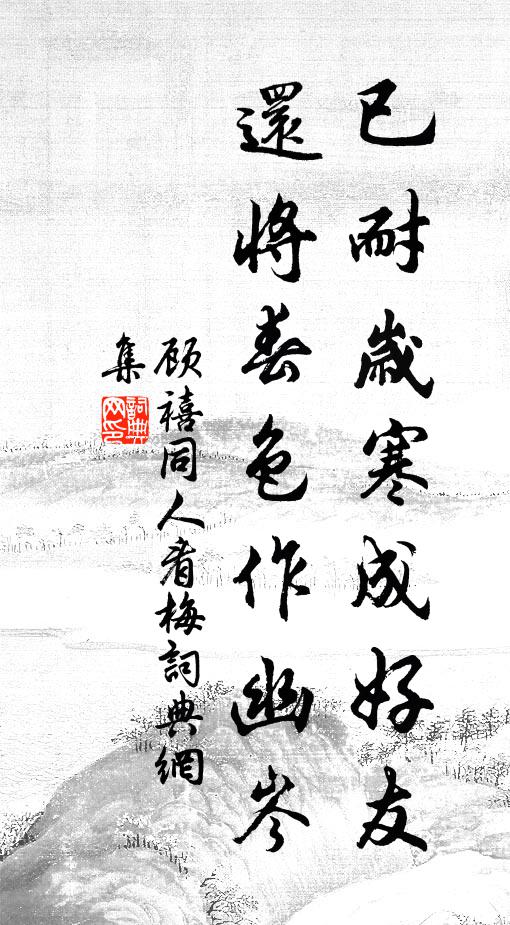 已耐歲寒成好友
還將春色作幽岑
顧禧同人看梅詞典網
集
詞典網印